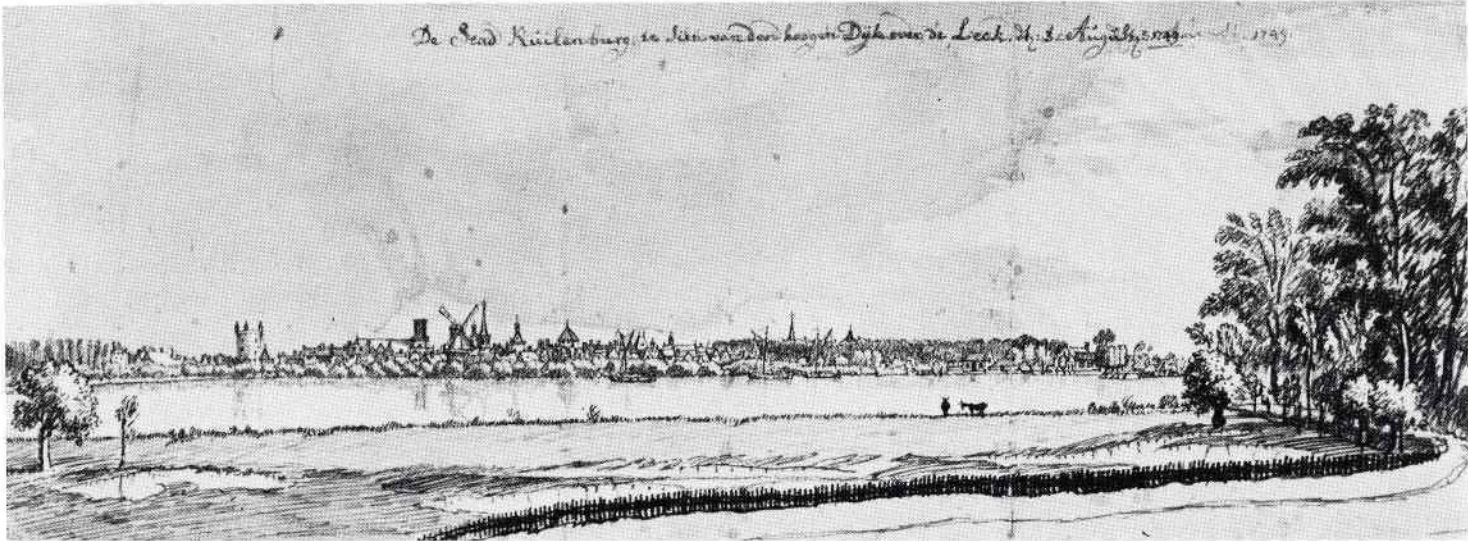 De Stad Kuilenburg, te sien van den hoogen Dijk over de Leck, d. 3. August, 1749 1749